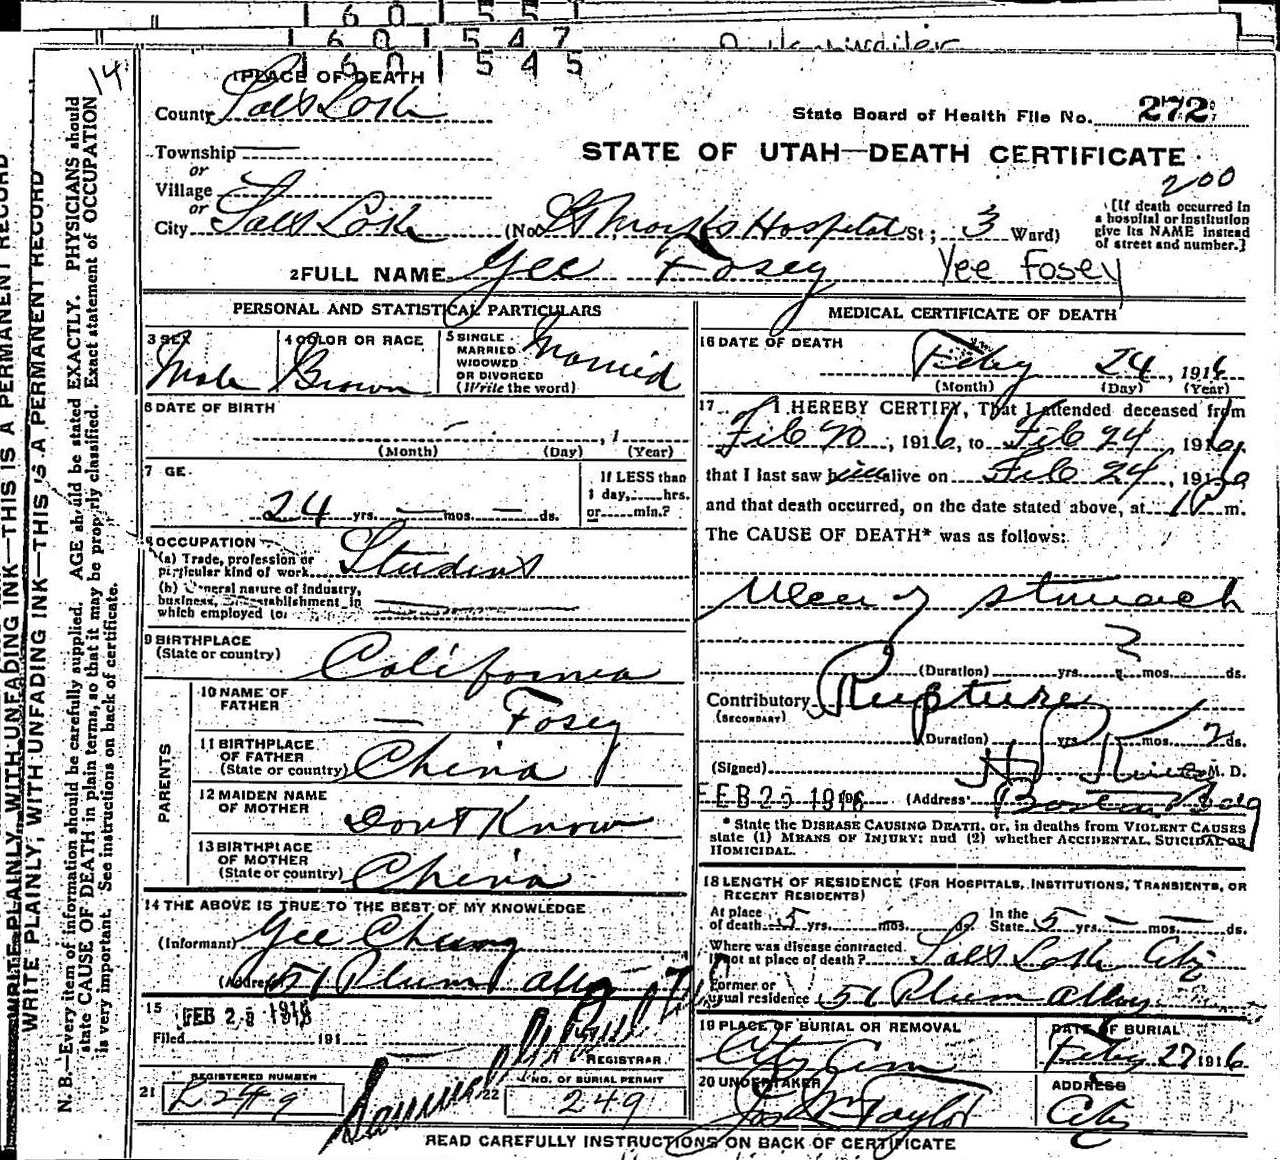 1 6 0 1 5 5 1
1 6 0 1 5 4 7
1 6 0 1 5 4 5
14
1 PLACE OF DEATH
County Salt Lake
State Board of Health File No. 272
Township
or
Village
or
STATE OF UTAH—DEATH CERTIFICATE
200
City Salt Lake (No. St Marks Hospital St; 3 Ward)
[If death occurred in
a hospital or institution
give its NAME instead
of street and number.]
2 FULL NAME Yee Fosey Yee Fosey
PERSONAL AND STATISTICAL PARTICULARS
3 SEX
Male
4 COLOR OR RACE
Brown
5 SINGLE
MARRIED
WIDOWED
OR DIVORCED
(Write the word)
Married
6 DATE OF BIRTH
, 1
(Month) (Day) (Year)
7 GE
24 yrs. — mos. — ds.
If LESS than
1 day, hrs.
or min.?
OCCUPATION
(a) Trade, profession or
particular kind of work Student
(b) General nature of industry,
business, establishment in
which employed (or
9 BIRTHPLACE
(State or country) California
PARENTS
10 NAME OF
FATHER — Fosey
11 BIRTHPLACE
OF FATHER
(State or country) China
12 MAIDEN NAME
OF MOTHER Dont Know
13 BIRTHPLACE
OF MOTHER
(State or country) China
14 THE ABOVE IS TRUE TO THE BEST OF MY KNOWLEDGE
(Informant) Yee Chung
(Address) 51 Plum alley
15 FEB 25 1916
Filed 191
REGISTRAR
21 REGISTERED NUMBER
L249
22 NO. OF BURIAL PERMIT
249
MEDICAL CERTIFICATE OF DEATH
16 DATE OF DEATH
Feby 24, 1916
(Month) (Day) (Year)
17 I HEREBY CERTIFY, That I attended deceased from
Feb 20, 1916, to Feb 24 1916,
that I last saw him alive on Feb 24, 1916
and that death occurred, on the date stated above, at 1 P m.
The CAUSE OF DEATH* was as follows:
Ulcer of stomach
?
(Duration) yrs. mos. ds.
Contributory Rupture
(SECONDARY)
(Duration) yrs. mos. 2 ds.
(Signed) M. D.
FEB 25 1916 (Address) Boston Bldg
* State the DISEASE CAUSING DEATH, or, in deaths from VIOLENT CAUSES
state (1) MEANS OF INJURY; and (2) whether ACCIDENTAL, SUICIDAL OR
HOMICIDAL.
18 LENGTH OF RESIDENCE (FOR HOSPITALS, INSTITUTIONS, TRANSIENTS, OR
RECENT RESIDENTS)
At place
of death 5 yrs. mos. ds.
In the
State 5 yrs. — mos. — ds.
Where was disease contracted
if not at place of death? Salt Lake City
Former or
usual residence 51 Plum Alley
19 PLACE OF BURIAL OR REMOVAL
City Cem
DATE OF BURIAL
Feby 27 1916
20 UNDERTAKER
Jos Wm Taylor
ADDRESS
City
READ CAREFULLY INSTRUCTIONS ON BACK OF CERTIFICATE
WRITE PLAINLY, WITH UNFADING INK—THIS IS A PERMANENT RECORD
WRITE PLAINLY, WITH UNFADING INK—THIS IS A PERMANENT RECORD
N. B.—Every item of information should be carefully supplied. AGE should be stated EXACTLY. PHYSICIANS should
state CAUSE OF DEATH in plain terms, so that it may be properly classified. Exact statement of OCCUPATION
is very important. See instructions on back of certificate.